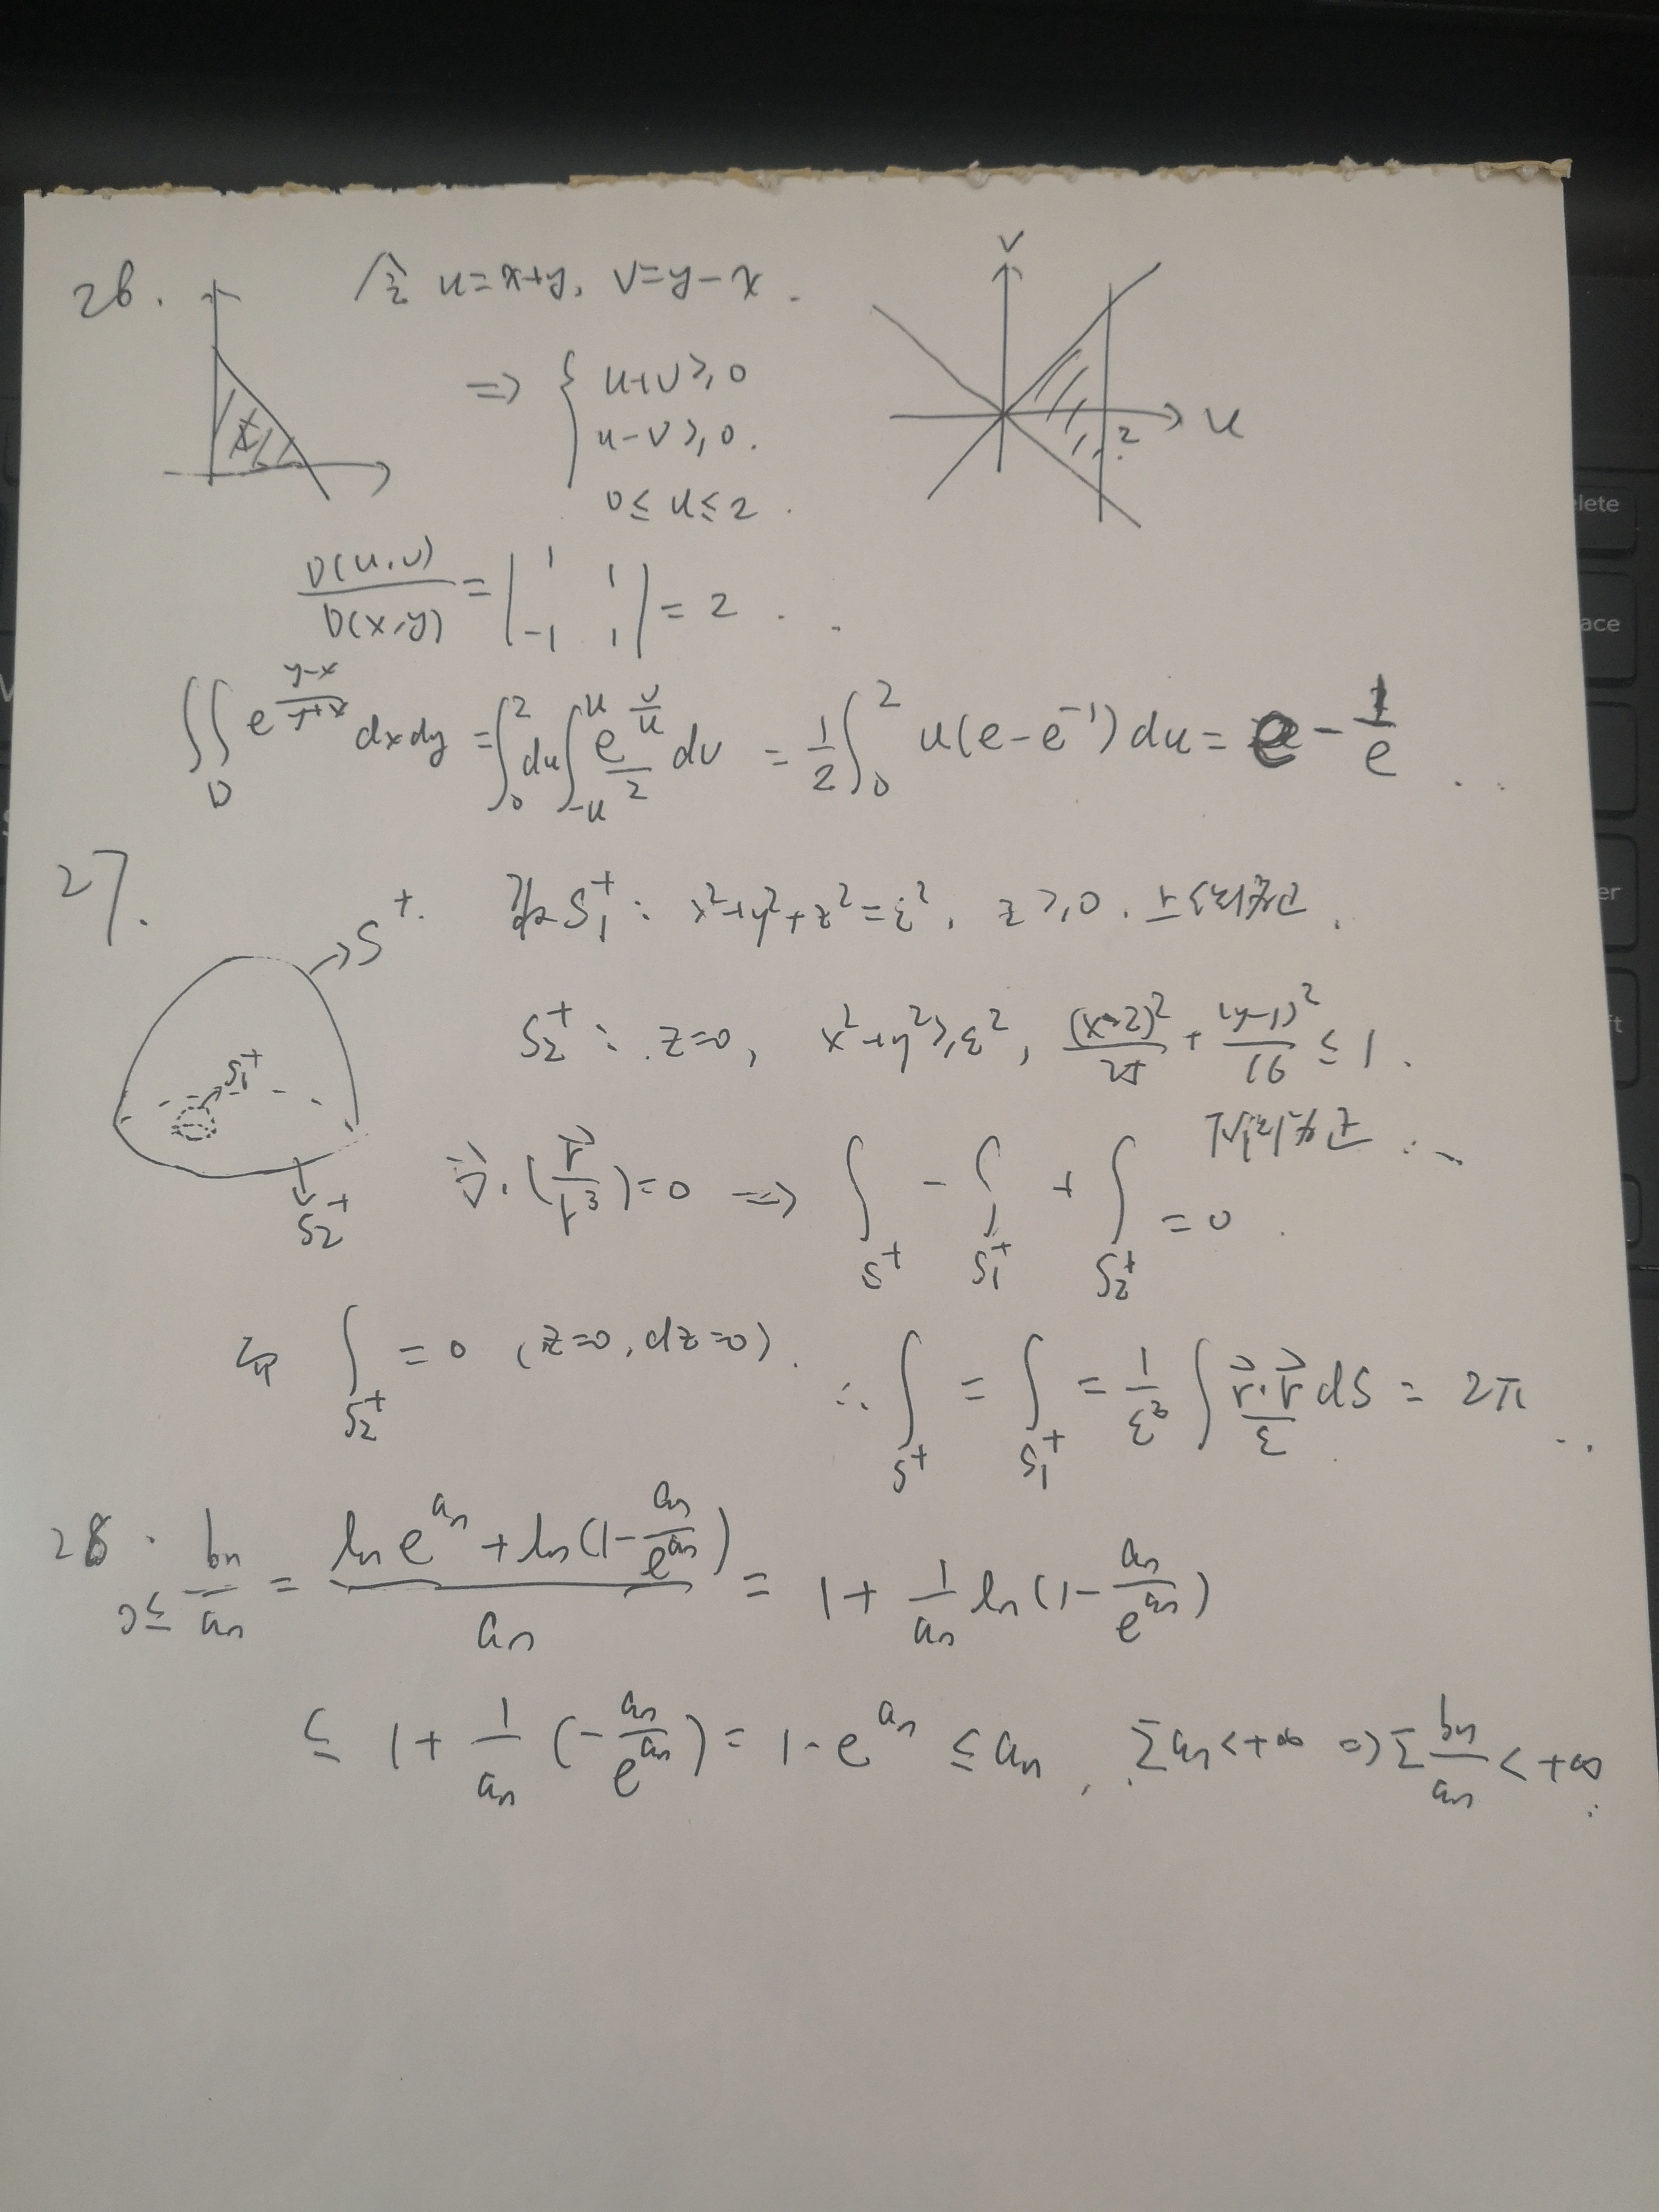 26. 令 u=x+y, v=y-x.
v
⇒ { u+v≥0
u-v≥0.
0≤u≤2.
2 u
D(u,v)/D(x,y) = |1 1; -1 1| = 2.
∬_D e^{(y-x)/(y+x)} dxdy = ∫_0^2 du ∫_{-u}^{u} e^{v/u}/2 dv = 1/2 ∫_0^2 u(e-e^{-1})du = e - 1/e
27.
S^+. 取S_1^+: x²+y²+z²=ε², z≥0. 上侧为正.
S_2^+: z=0, x²+y²≥ε², (x-2)²/25 + (y-1)²/16 ≤ 1.
S_1^+
下侧为正
∇·(r⃗/r³)=0 ⇒ ∫_{S^+} - ∫_{S_1^+} + ∫_{S_2^+} = 0.
S_2^+
而 ∫_{S_2^+} = 0 (z=0, dz=0). ∴ ∫_{S^+} = ∫_{S_1^+} = 1/ε² ∫ r⃗·r⃗/ε dS = 2π
28. 0≤ b_n/a_n = (ln e^{a_n} + ln(1-a_n/e^{a_n}))/a_n = 1 + 1/a_n ln(1-a_n/e^{a_n})
≤ 1 + 1/a_n (-a_n/e^{a_n}) = 1-e^{a_n} ≤ a_n, Σa_n<+∞ ⇒ Σ b_n/a_n < +∞
elete
ace
er